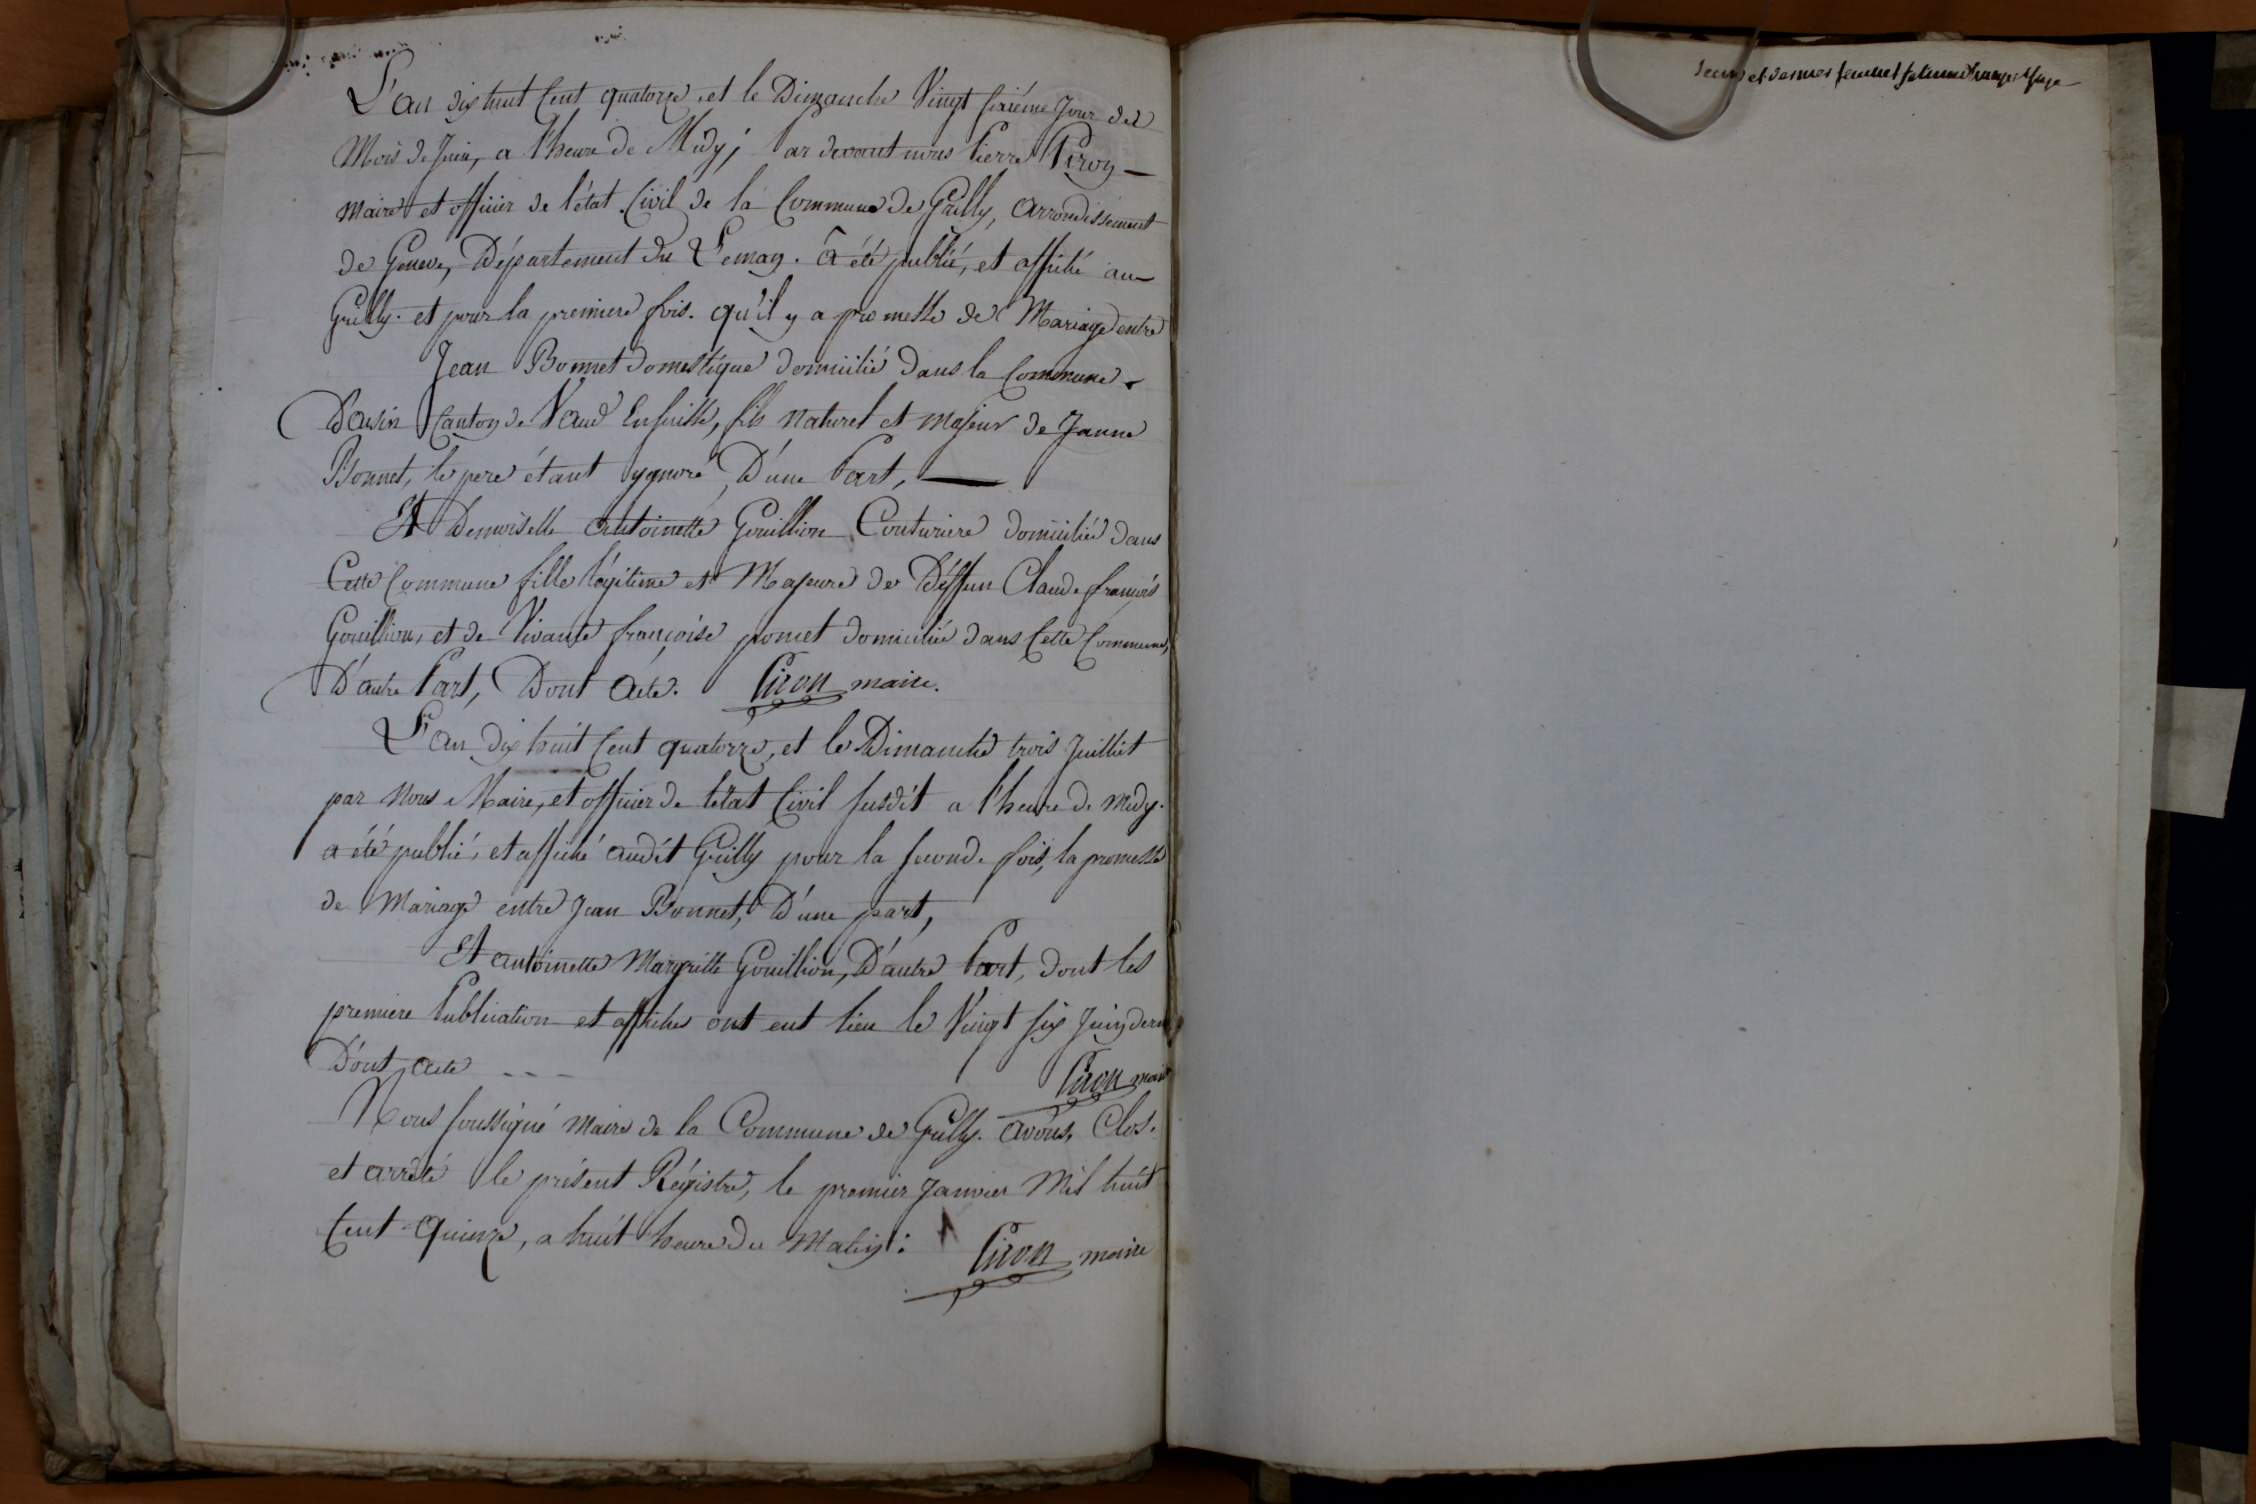 L'an dix huit Cent quatorze, et le Dimanche Vingt sixiéme Jour del
Mois de Juin, a l'heure de Midy; Par devant nous Pierre Piron
Maire et officier de l'état Civil de la Commune de Grilly, arrondissement
de Geneve, Département du Leman. a été publié, et affiché au
Grilly. et pour la premiere fois. qu'il y a promesse de Mariage entre
Jean Bonnet domestique domicilié dans la Commune
Canton de Vaud En suisse, fils naturel et majeur de Jeanne
Bonnet, le pere étant ygnoré, D'une Part,
Et Demoiselle antoinette Gouillion Couturiere domicilié dans
Cette Commune fille légitime et Majeure de Déffun Claude françois
Gouillion, et de Vivante françoise pomet domiciliée dans Cette Commune,
D'autre Part, Dont acte. Piron maire.
L'an dix huit Cent quatorze, et le Dimanche trois Juilliet
par Nous Maire, et officier de letat Civil susdit a l'heure de midy.
a été publié, et affiché audit Grilly pour la seconde fois, la promesse
de Mariage entre Jean Bonnet, D'une part,
Et antoinette Margritte Gouillion, D'autre Part, dont les
premiere Publication et affiches ont eut lieu le Vingt six Juin dern
D'out acte --- Piron maire
Nous soussigné Maire de la Commune de Grilly. avons, Clos.
et arreté le présent Régistre, le premier Janvier Mil huit
Cent-Quinze, a huit heure du Matin: Piron maire
et dernier feuillet